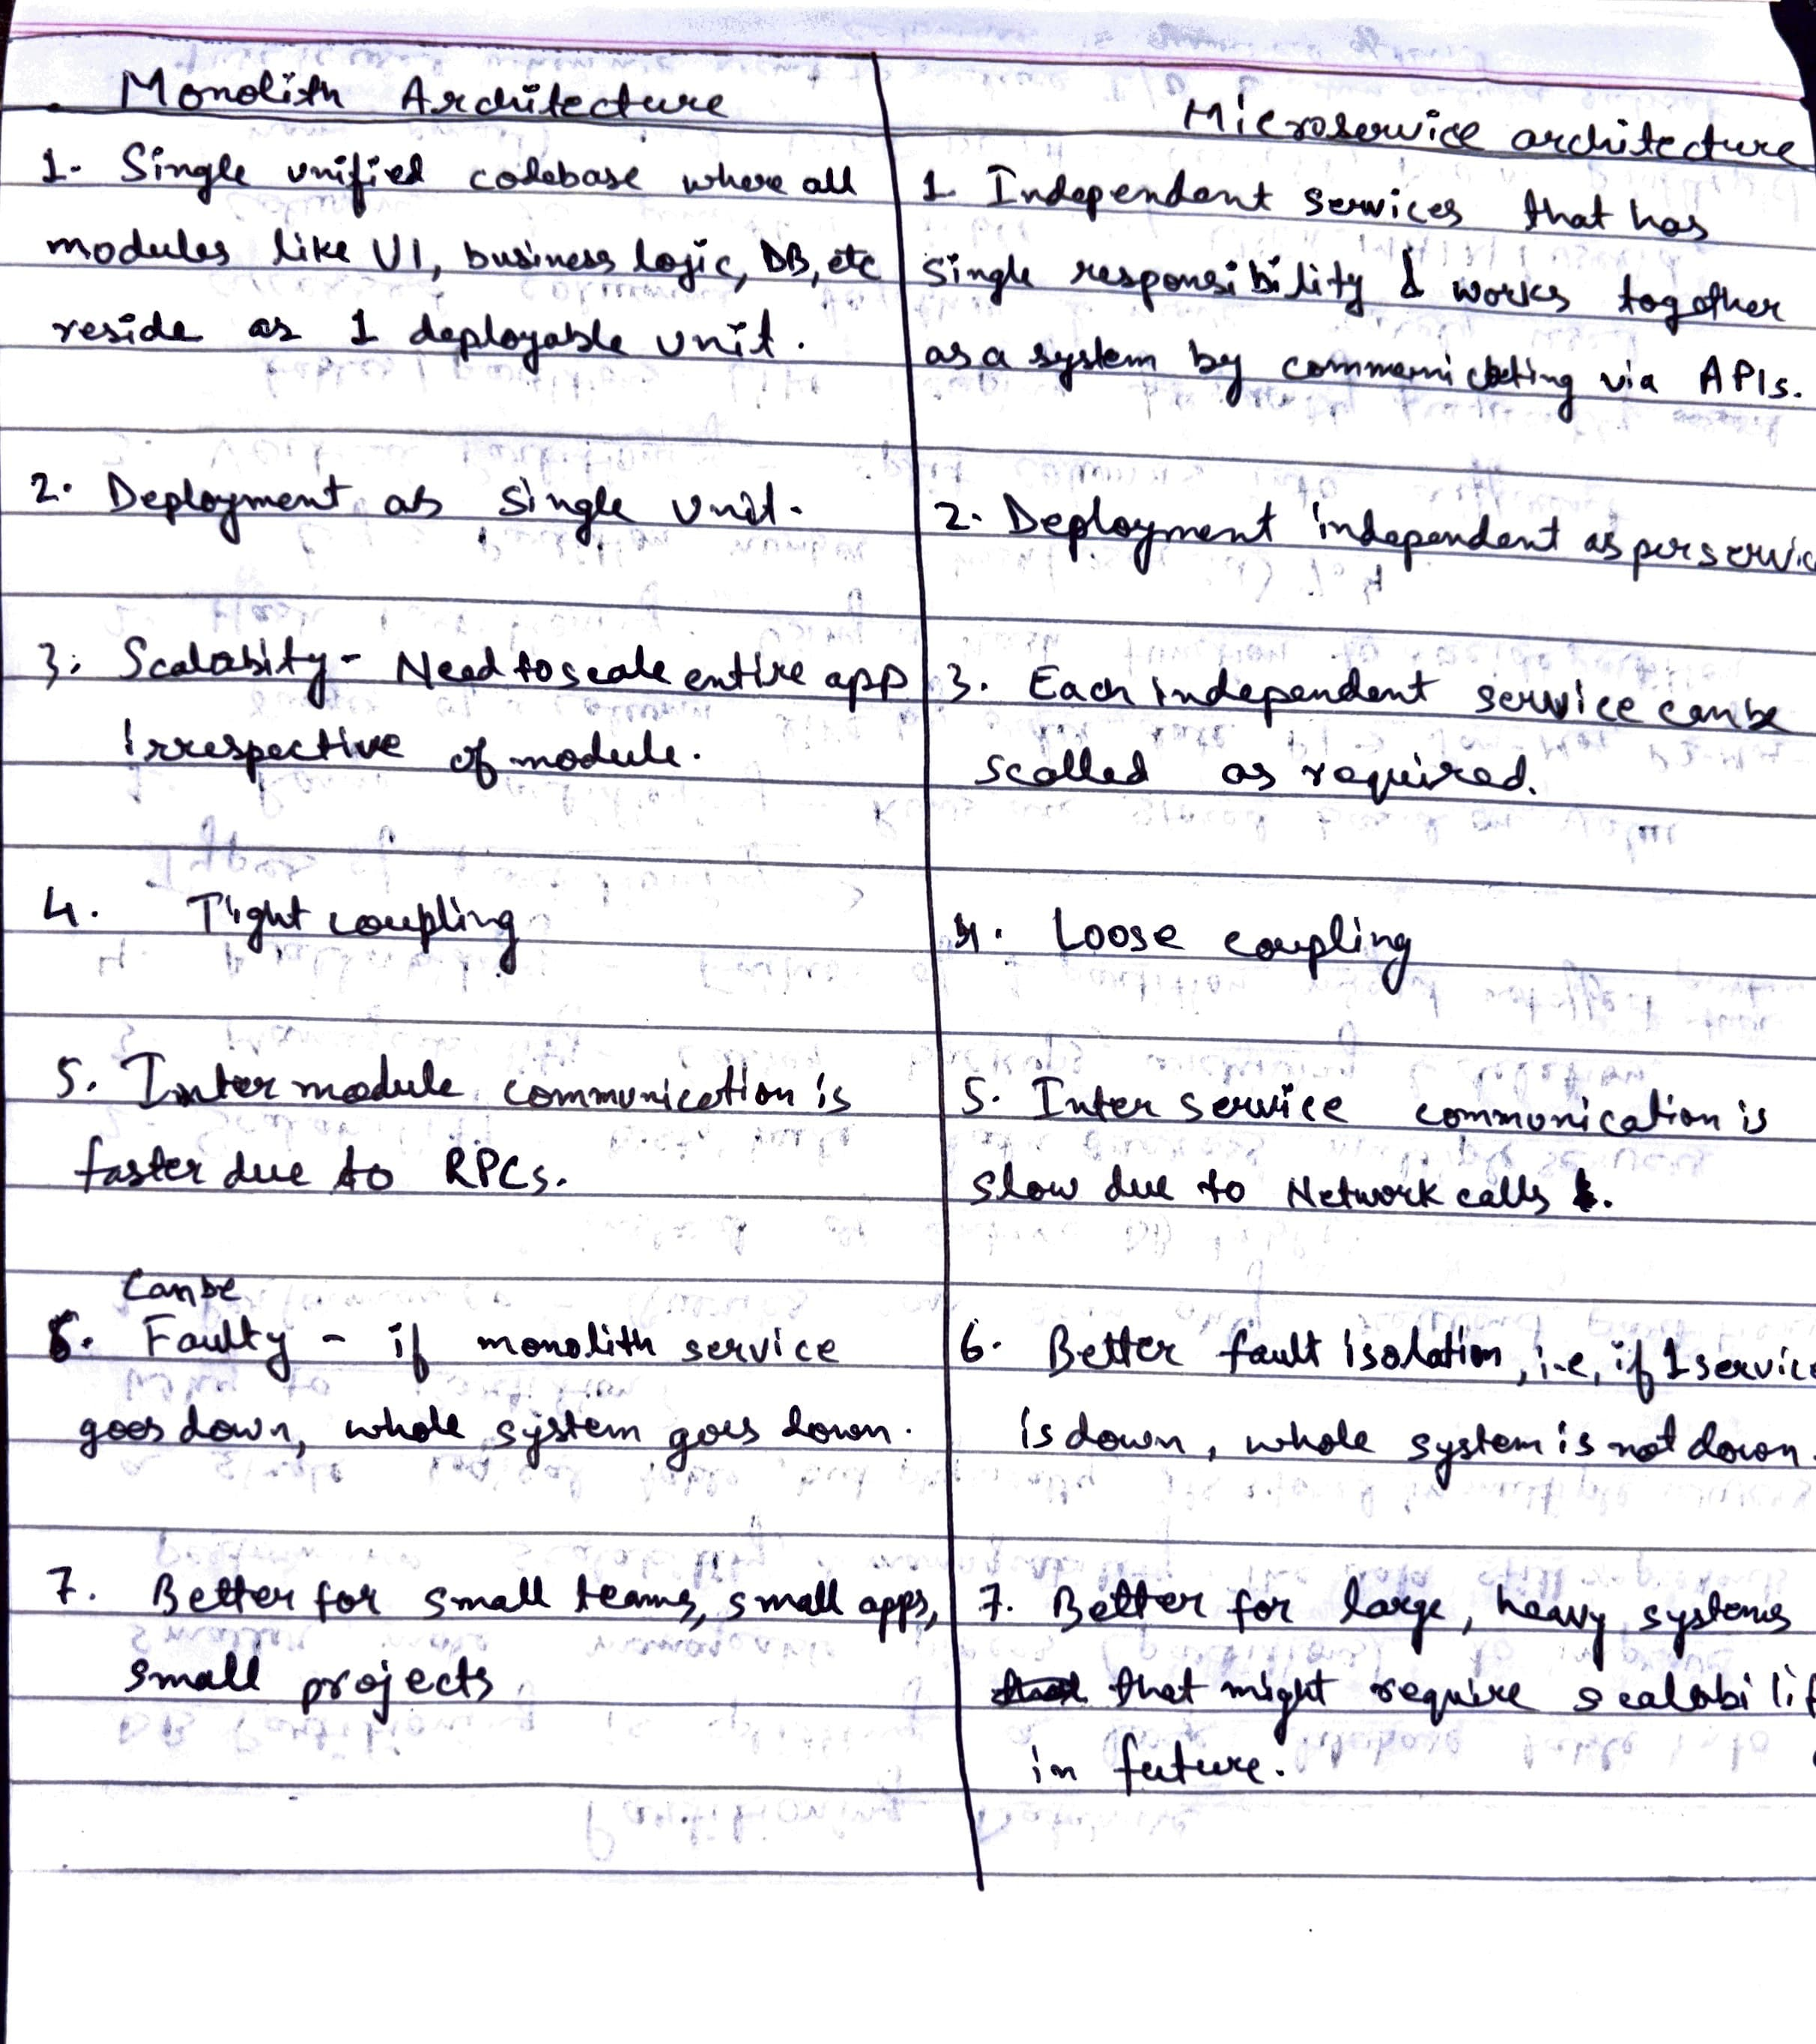 Monolith Architecture
1. Single unified codebase where all
modules like UI, business logic, DB, etc
reside as 1 deployable unit.
2. Deployment as single unit.
3. Scalabity - Need to scale entire app
irrespective of module.
4. Tight coupling
5. Inter module communication is
faster due to RPCs.
Can be
6. Faulty - if monolith service
goes down, whole system goes down.
7. Better for small teams, small apps,
small projects
Microservice architecture
1. Independent services that has
single responsibility & works together
as a system by communicating via APIs.
2. Deployment independent as per servic
3. Each independent service can be
scalled as required.
4. Loose coupling
5. Inter service communication is
slow due to Network calls.
6. Better fault isolation, i.e, if 1 service
is down, whole system is not down.
7. Better for large, heavy systems
that might require scalabilit
in future.